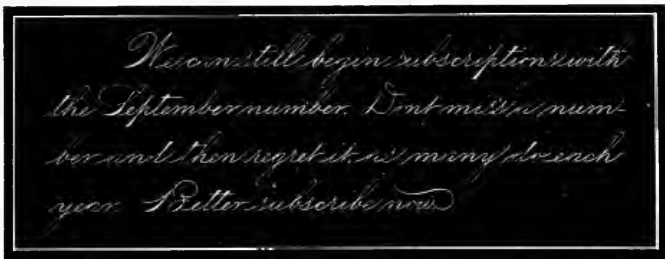 We can still begin subscriptions with
the September number. Dont miss a num-
ber and then regret it as many do each
year. Better subscribe now